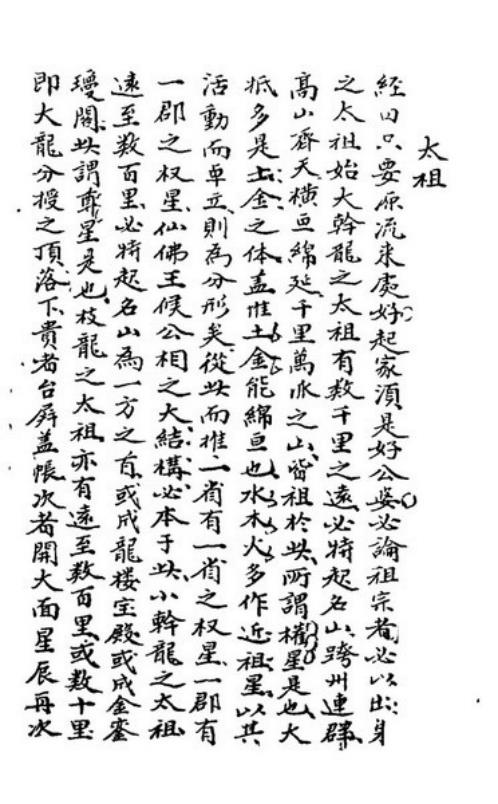 太祖
經曰只要源流来處好起家須是好公婆必論祖宗者必以出身
之太祖始大幹龍之太祖有数千里之遠必特起名山跨州連群
高山齊天横亘綿延千里萬派之山皆祖於此所謂權星是也大
抵多是土金之体盖惟土金能綿亘也水木火多作近祖星以其
活動而卓立則為分形矣從此而推一省有一省之权星一郡有
一郡之权星仙佛王候公相之大結構必本于此小幹龍之太祖
遠至数百里必特起名山為一方之首或成龍楼宝殿或成金鑾
瓊閣此謂尊星是也枝龍之太祖亦有遠至数百里或数十里
即大龍分授之頂落下貴者台屏盖帳次者開大面星辰再次